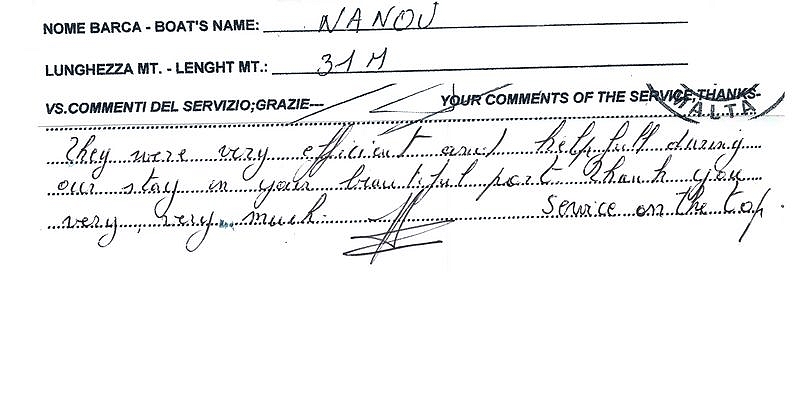 NOME BARCA - BOAT'S NAME: NANOU
LUNGHEZZA MT. - LENGHT MT.: 31 M
VS.COMMENTI DEL SERVIZIO;GRAZIE--- YOUR COMMENTS OF THE SERVICE;THANKS-
MALTA
They were very efficient and helpfull during
our stay in your beautiful port Thank you
very, very much. Service on the top.